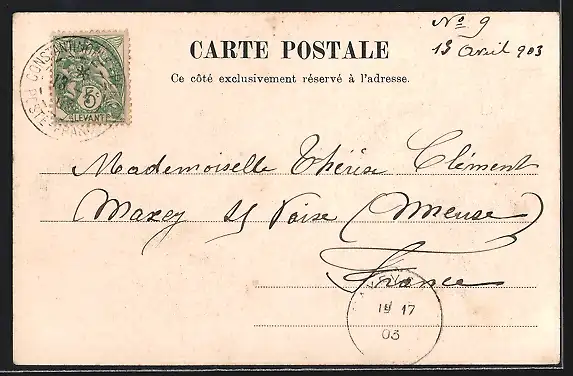 Nº 9
13 avril 903
CARTE POSTALE
Ce côté exclusivement réservé à l'adresse.
CONSTANTINOPLE
POSTE FRANC
5c
LEVANT
Mademoiselle Thérèse Clément
Maxey s/ Vaise (Meuse)
France
17
03